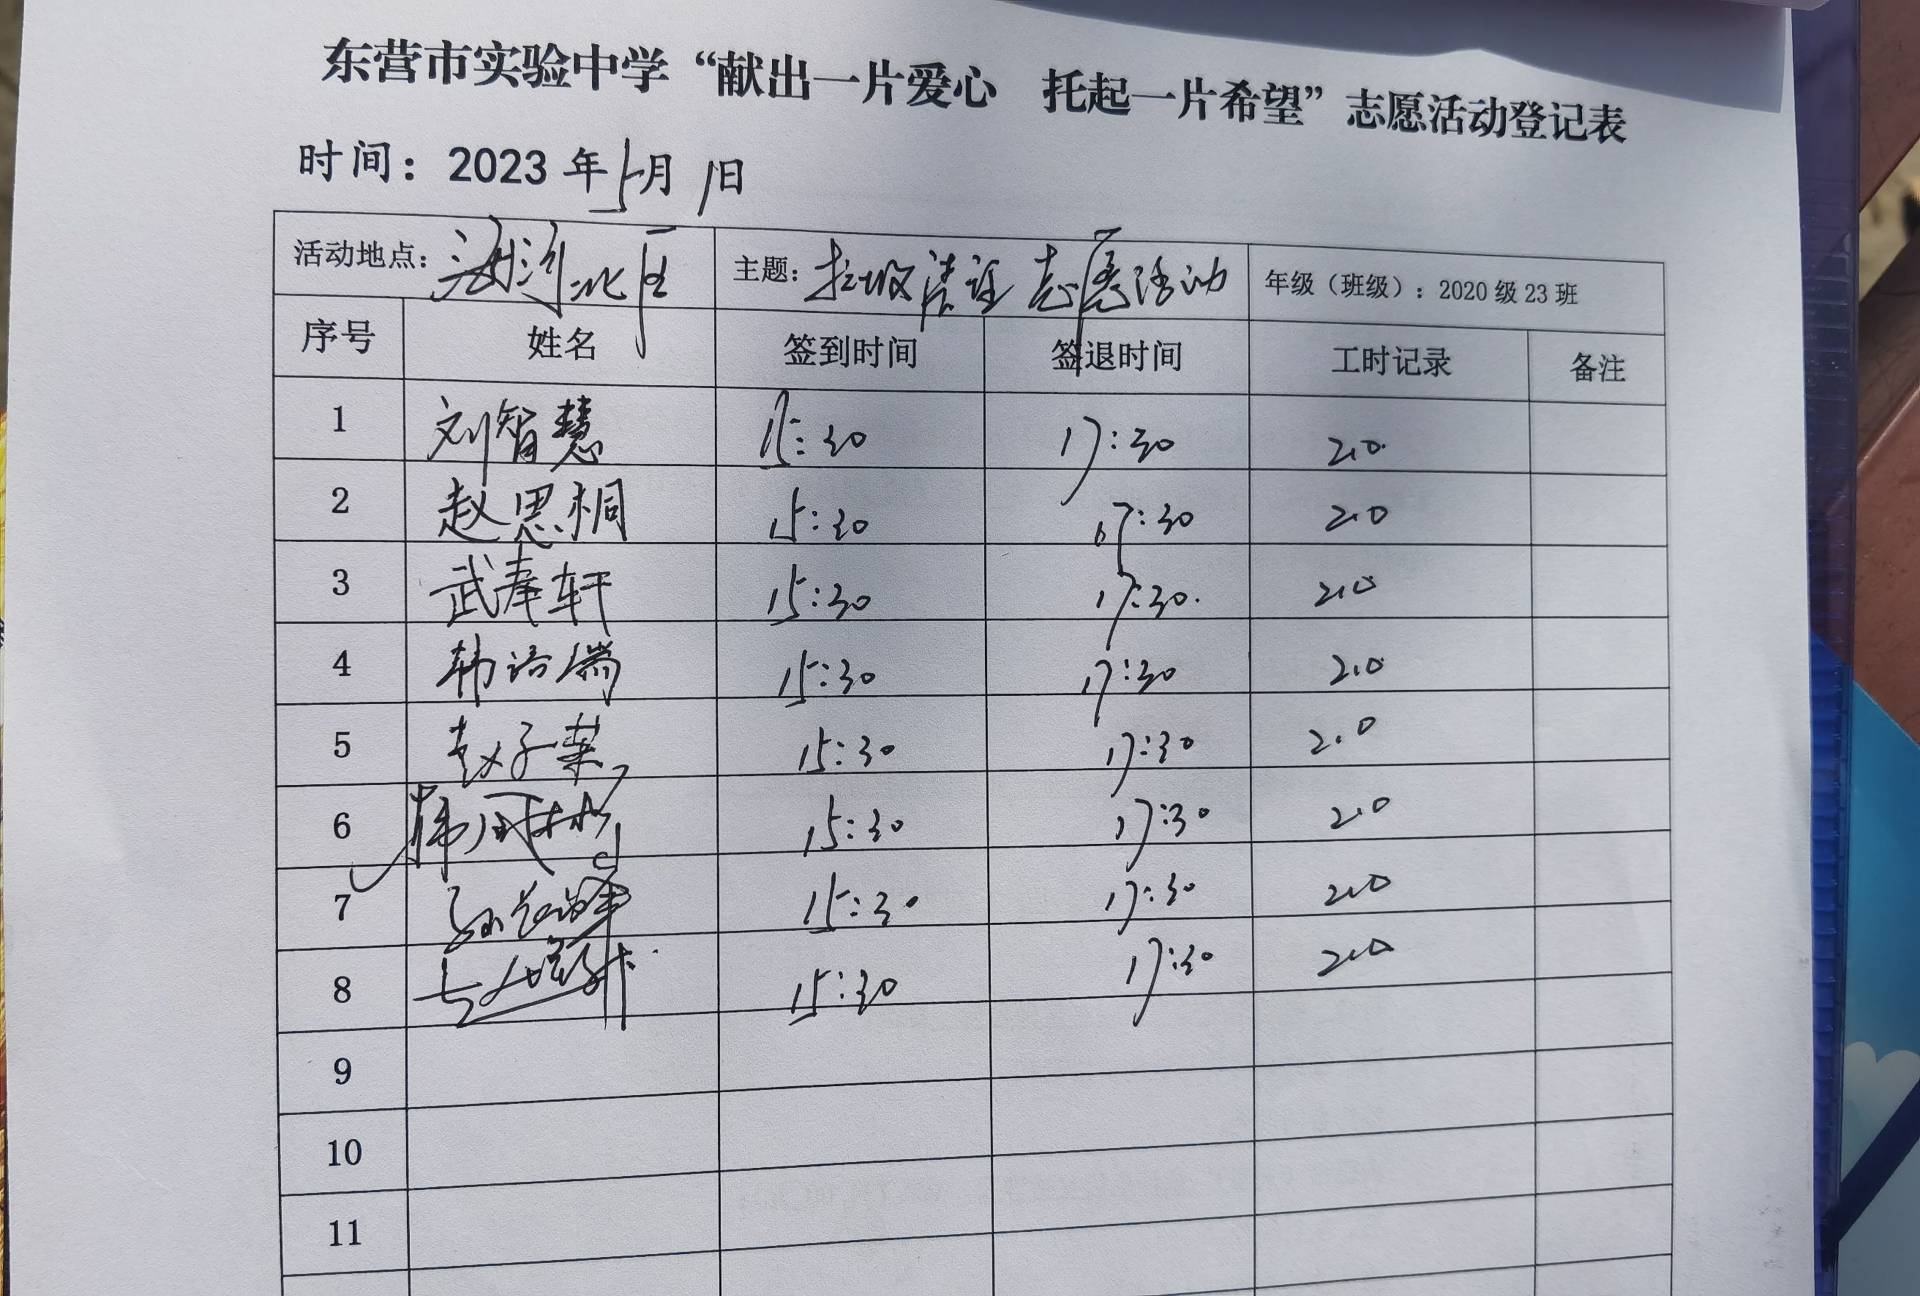 东营市实验中学“献出一片爱心 托起一片希望”志愿活动登记表
时间：2023年5月1日
活动地点：海河北区 主题：垃圾清理志愿活动 年级（班级）：2020级23班
序号 姓名 签到时间 签退时间 工时记录 备注
1 刘智慧 15:30 17:30 2.0
2 赵思桐 15:30 17:30 2.0
3 武奉轩 15:30 17:30 2.0
4 韩语瑞 15:30 17:30 2.0
5 赵子 15:30 17:30 2.0
6 韩 15:30 17:30 2.0
7 15:30 17:30 2.0
8 15:30 17:30 2.0
9
10
11